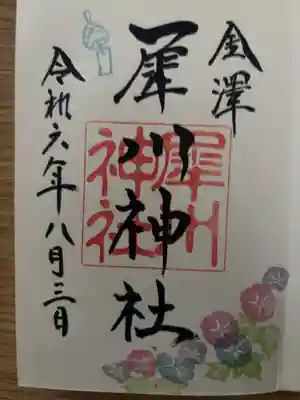 金澤
犀川神社
犀川
神社
令和六年八月三日